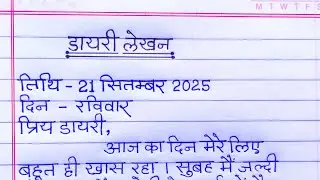 M T W T F S
डायरी लेखन
तिथि - 21 सितम्बर 2025
दिन - रविवार
प्रिय डायरी,
आज का दिन मेरे लिए
बहुत ही खास रहा । सुबह मैं जल्दी